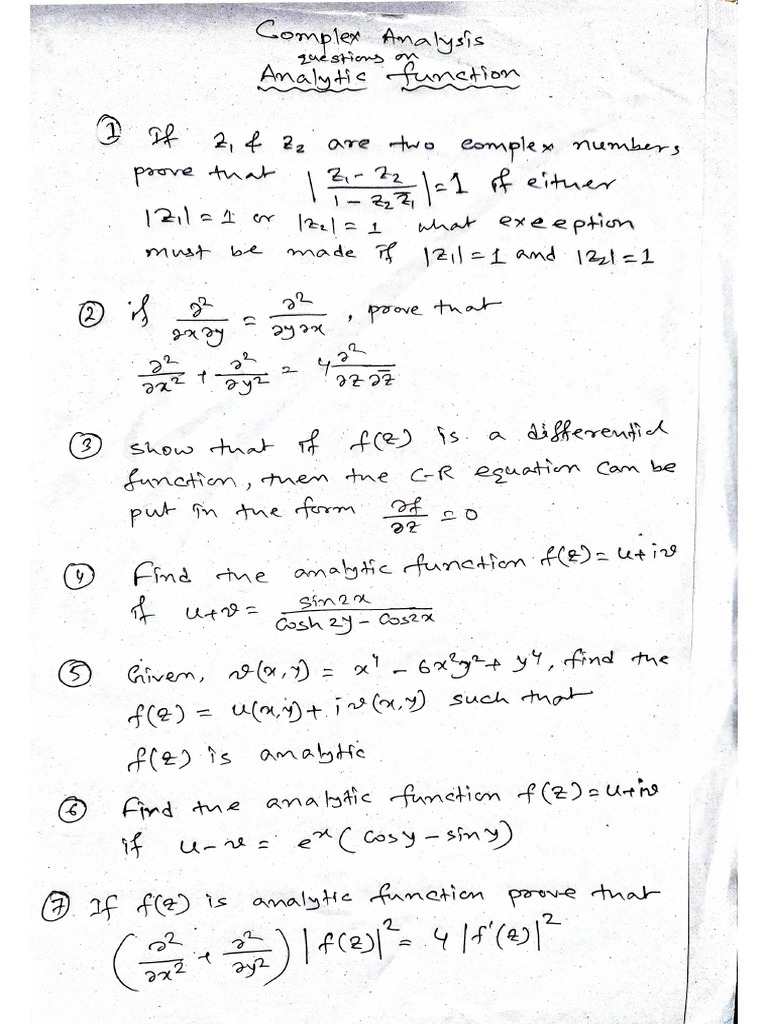 Complex Analysis
questions on
Analytic function
① If z₁ & z₂ are two complex numbers
prove that |(z₁ - z₂)/(1 - z₂z̄₁)| = 1 if either
|z₁| = 1 or |z₂| = 1 what exeeption
must be made if |z₁| = 1 and |z₂| = 1
② if ∂²/∂x∂y = ∂²/∂y∂x , prove that
∂²/∂x² + ∂²/∂y² = 4∂²/∂z∂z̄
③ show that if f(z) is a differential
function, then the C-R equation can be
put in the form ∂f/∂z = 0
④ Find the analytic function f(z) = u+iv
if u+v = sin2x/(cosh2y - cos2x)
⑤ Given, v(x,y) = x⁴ - 6x²y² + y⁴, find the
f(z) = u(x,y) + iv(x,y) such that
f(z) is analytic
⑥ Find the analytic function f(z) = u+iv
if u-v = eˣ(cosy - siny)
⑦ If f(z) is analytic function prove that
(∂²/∂x² + ∂²/∂y²)|f(z)|² = 4|f'(z)|²